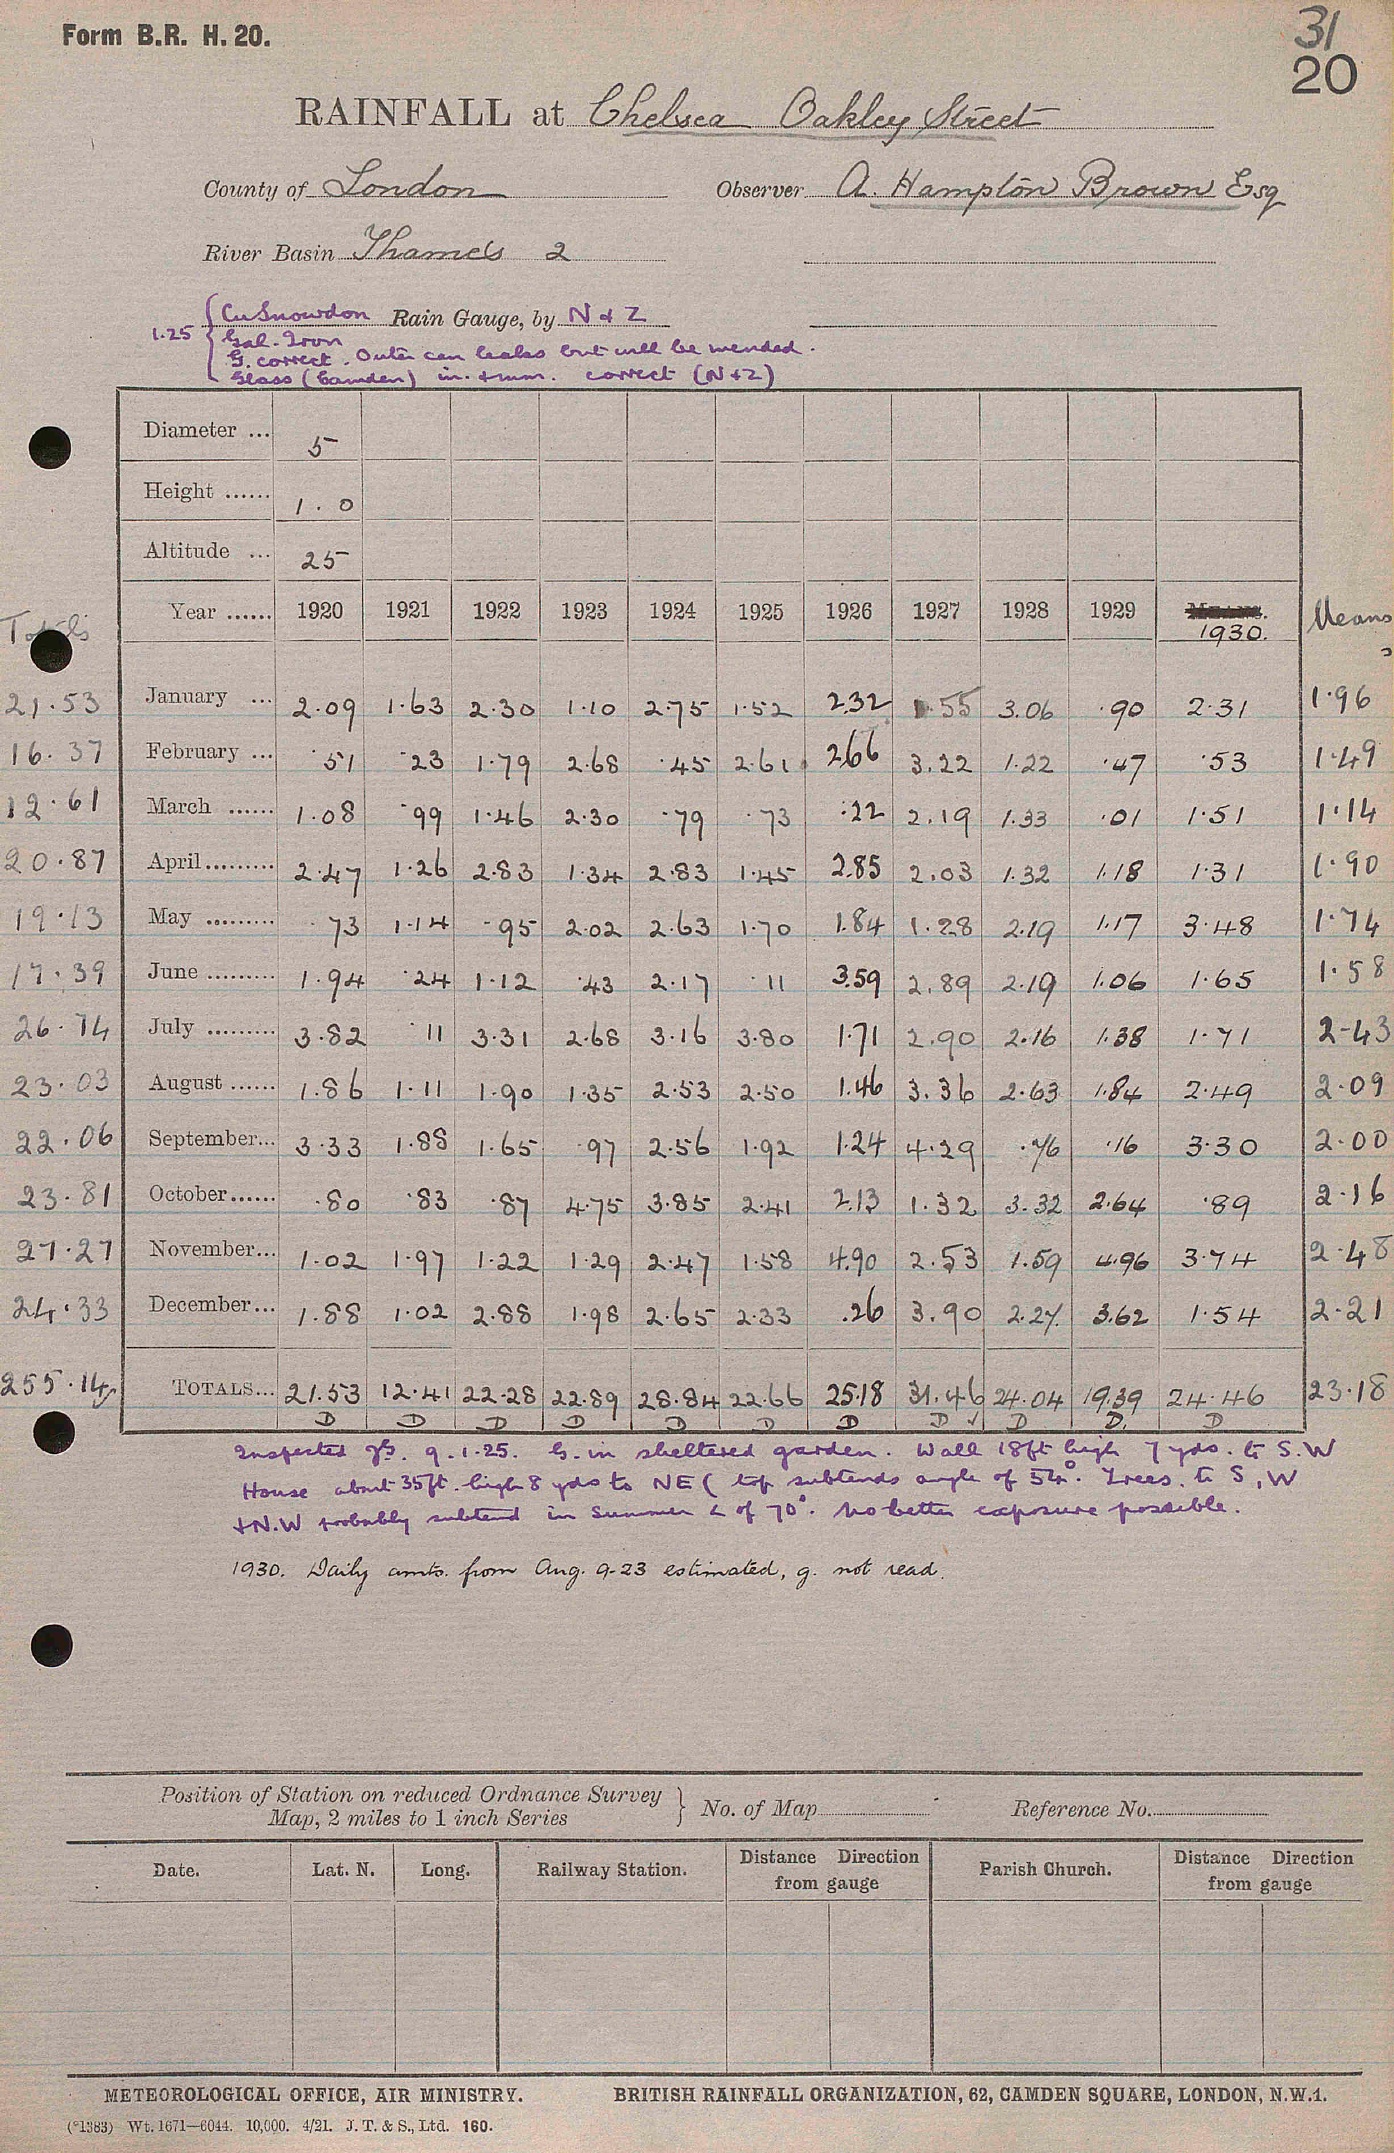 Form B.R. H. 20.
31
20
RAINFALL at Chelsea Oakley Street
County of London Observer A. Hampton Brown Esq
River Basin Thames 2
1.25 { Cu Snowdon Rain Gauge, by N & Z
Gal. Iron
G. correct. Outer can leaks but will be mended.
Glass (Camden) in. & mm. correct (N & Z)
Diameter ... 5
Height ...... 1.0
Altitude ... 25
Totals Year ...... 1920 1921 1922 1923 1924 1925 1926 1927 1928 1929 1930. Means
21.53 January ... 2.09 1.63 2.30 1.10 2.75 1.52 2.32 1.55 3.06 .90 2.31 1.96
16.37 February ... .51 .23 1.79 2.68 .45 2.61 2.66 3.22 1.22 .47 .53 1.49
12.61 March ...... 1.08 .99 1.46 2.30 .79 .73 .22 2.19 1.33 .01 1.51 1.14
20.87 April ......... 2.47 1.26 2.83 1.34 2.83 1.45 2.85 2.03 1.32 1.18 1.31 1.90
19.13 May ......... .73 1.14 .95 2.02 2.63 1.70 1.84 1.28 2.19 1.17 3.48 1.74
17.39 June ......... 1.94 .24 1.12 .43 2.17 .11 3.59 2.89 2.19 1.06 1.65 1.58
26.74 July ......... 3.82 .11 3.31 2.68 3.16 3.80 1.71 2.90 2.16 1.38 1.71 2.43
23.03 August ...... 1.86 1.11 1.90 1.35 2.53 2.50 1.46 3.36 2.63 1.84 2.49 2.09
22.06 September... 3.33 1.88 1.65 .97 2.56 1.92 1.24 4.29 .76 .16 3.30 2.00
23.81 October...... .80 .83 .87 4.75 3.85 2.41 2.13 1.32 3.32 2.64 .89 2.16
27.27 November... 1.02 1.97 1.22 1.29 2.47 1.58 4.90 2.53 1.59 4.96 3.74 2.48
24.33 December... 1.88 1.02 2.88 1.98 2.65 2.33 .26 3.90 2.27 3.62 1.54 2.21
255.14 TOTALS... 21.53 12.41 22.28 22.89 28.84 22.66 25.18 31.46 24.04 19.39 24.46 23.18
D D D D D D D D ✓ D D. D
Inspected 9.1.25. G. in sheltered garden. Wall 18ft high 7 yds. to S.W
House about 35ft. high 8 yds to NE ( top subtends angle of 54°. Trees. to S, W
& N.W probably subtend in Summer ∠ of 70°. No better exposure possible.
1930. Daily amts. from Aug. 9-23 estimated, g. not read.
Position of Station on reduced Ordnance Survey
Map, 2 miles to 1 inch Series } No. of Map Reference No.
Date. Lat. N. Long. Railway Station. Distance Direction from gauge Parish Church. Distance Direction from gauge
METEOROLOGICAL OFFICE, AIR MINISTRY. BRITISH RAINFALL ORGANIZATION, 62, CAMDEN SQUARE, LONDON, N.W.1.
(*1383) Wt. 1671—6044. 10,000. 4/21. J. T. & S., Ltd. 160.